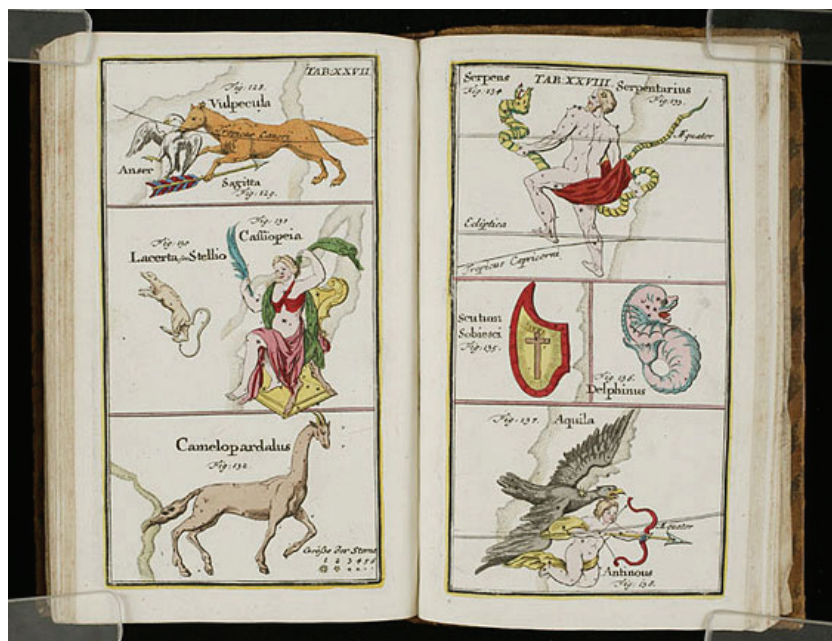 TAB:XXVII
Fig: 128.
Vulpecula
Tropicus Cancri
Anser
Sagitta
Fig: 129.
Fig: 130
Lacerta Stellio
Fig: 131
Cassiopeia
Camelopardalus
Fig: 132.
Größe der Sterne
1 2 3 4 5 6
Serpens
Fig: 134.
TAB:XXVIII.
Serpentarius
Fig: 133.
Æquator
Ecliptica
Tropicus Capricorni
Scutum
Sobiesci
Fig: 135.
Fig 136.
Delphinus
Fig: 137.
Aquila
Æquator
Antinous
Fig: 138.